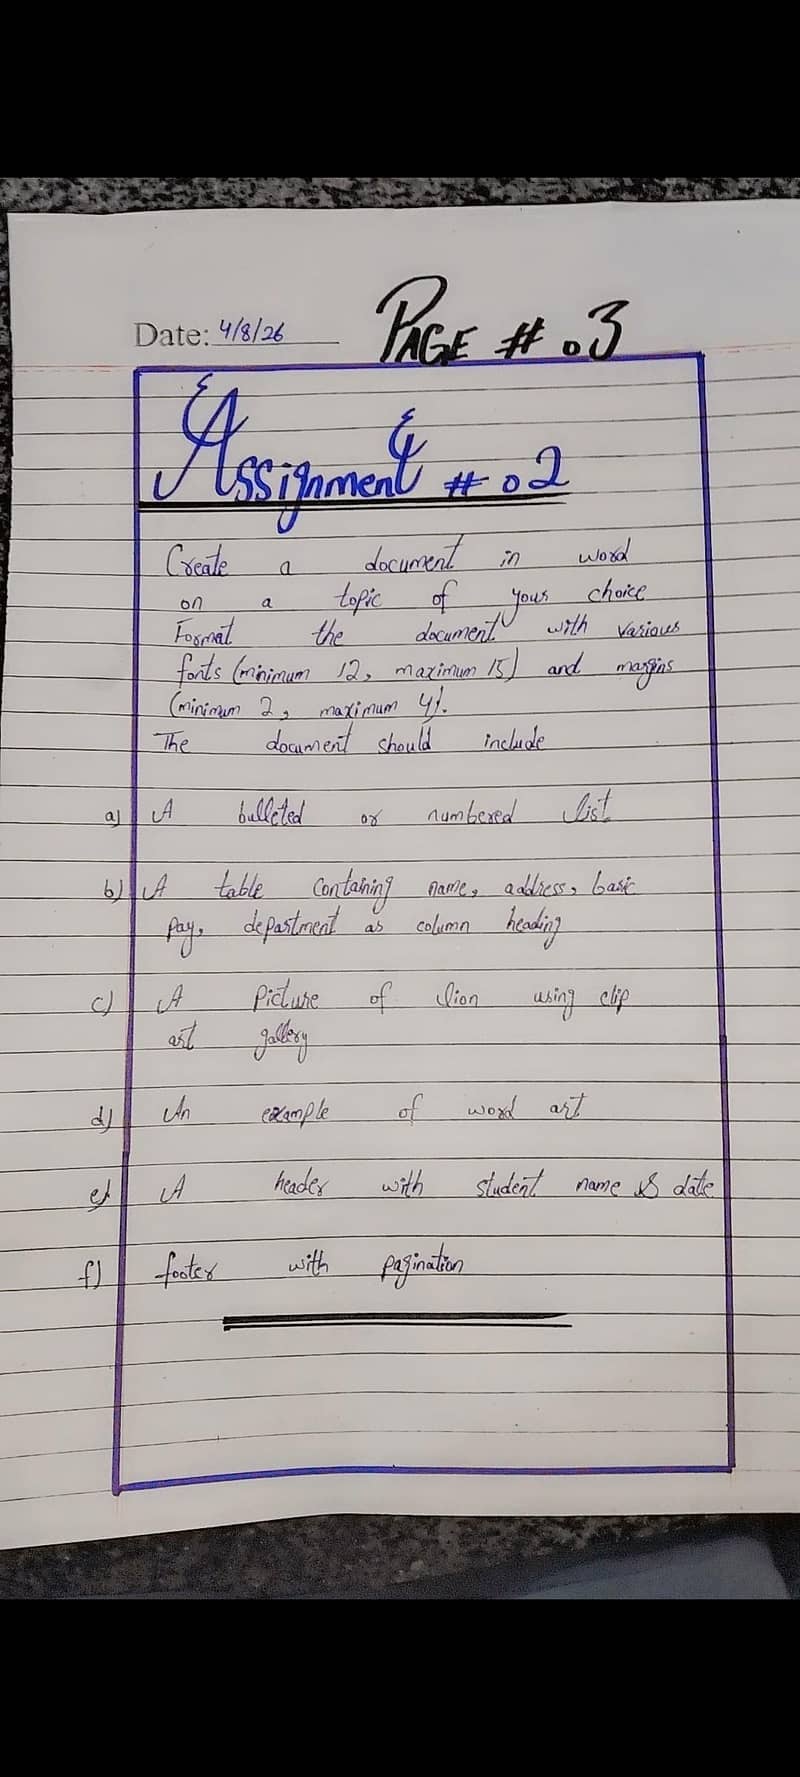 Date: 4/8/26
PAGE # 03
Assignment # 02
Create a document in word
on a topic of your choice
Format the document with various
fonts (minimum 12, maximum 15) and margins
(minimum 2, maximum 4).
The document should include
a) A bulleted or numbered list
b) A table containing name, address, basic
pay, department as column heading
c) A Picture of lion using clip
art gallery
d) An example of word art
e) A header with student name & date
f) footer with pagination